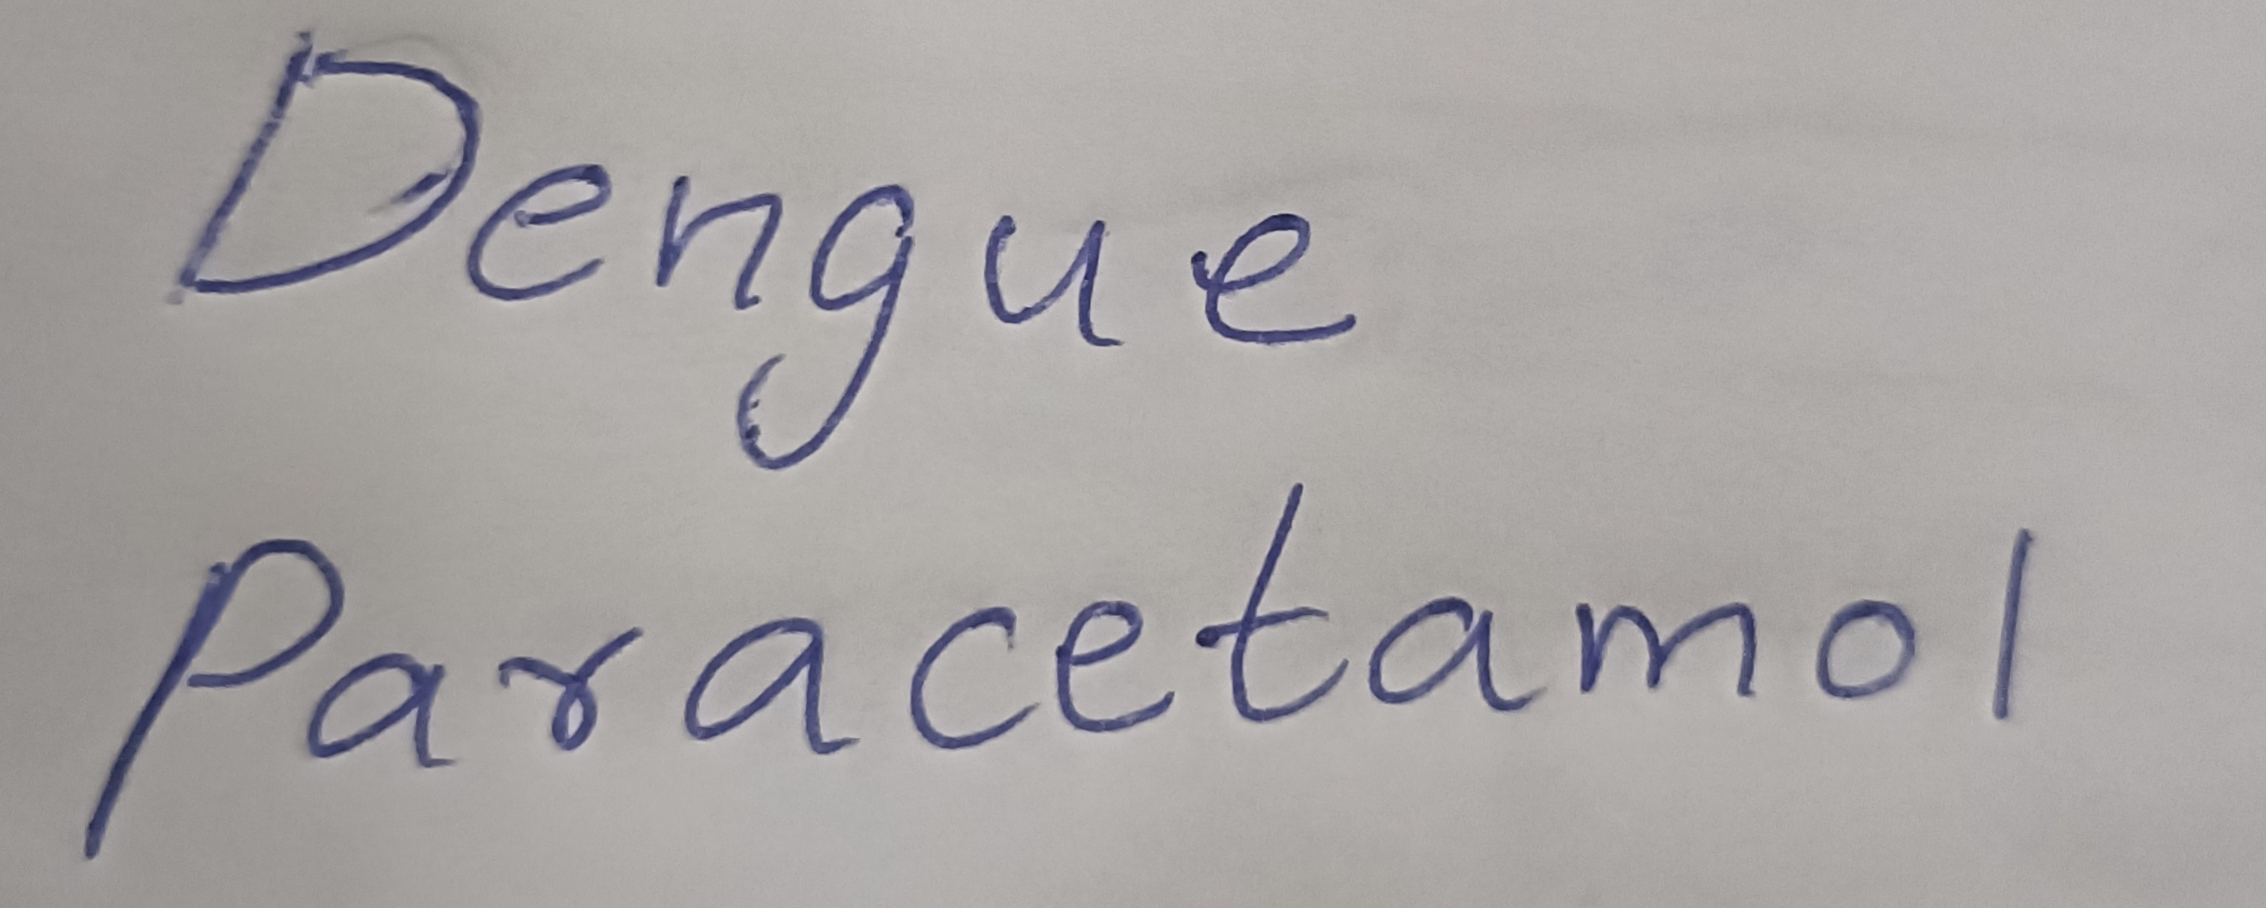 Dengue
Paracetamol